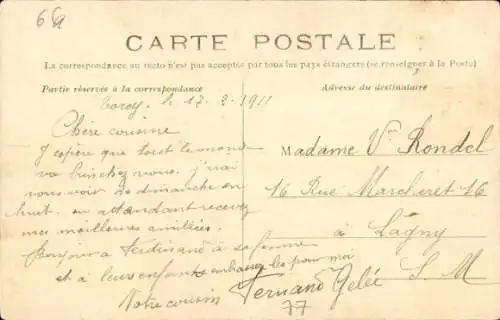 6a
CARTE POSTALE
La correspondance au recto n'est pas acceptée par tous les pays étrangers (se renseigner à la Poste)
Partie réservée à la correspondance
Adresse du destinataire
Torcy, le 17. 8. 1911
Chère cousine
J'espère que tout le monde
va bien chez vous. j'irai
vous voir de dimanche en
huit. en attendant recevez
mes meilleures amitiés.
Bonjour a Ferdinand à sa femme
et à leurs enfants embrasse les pour moi
Notre cousin Fernand Gelée
Madame Vve Rondel
16 Rue Marcheret 16
à Lagny
S. M
77